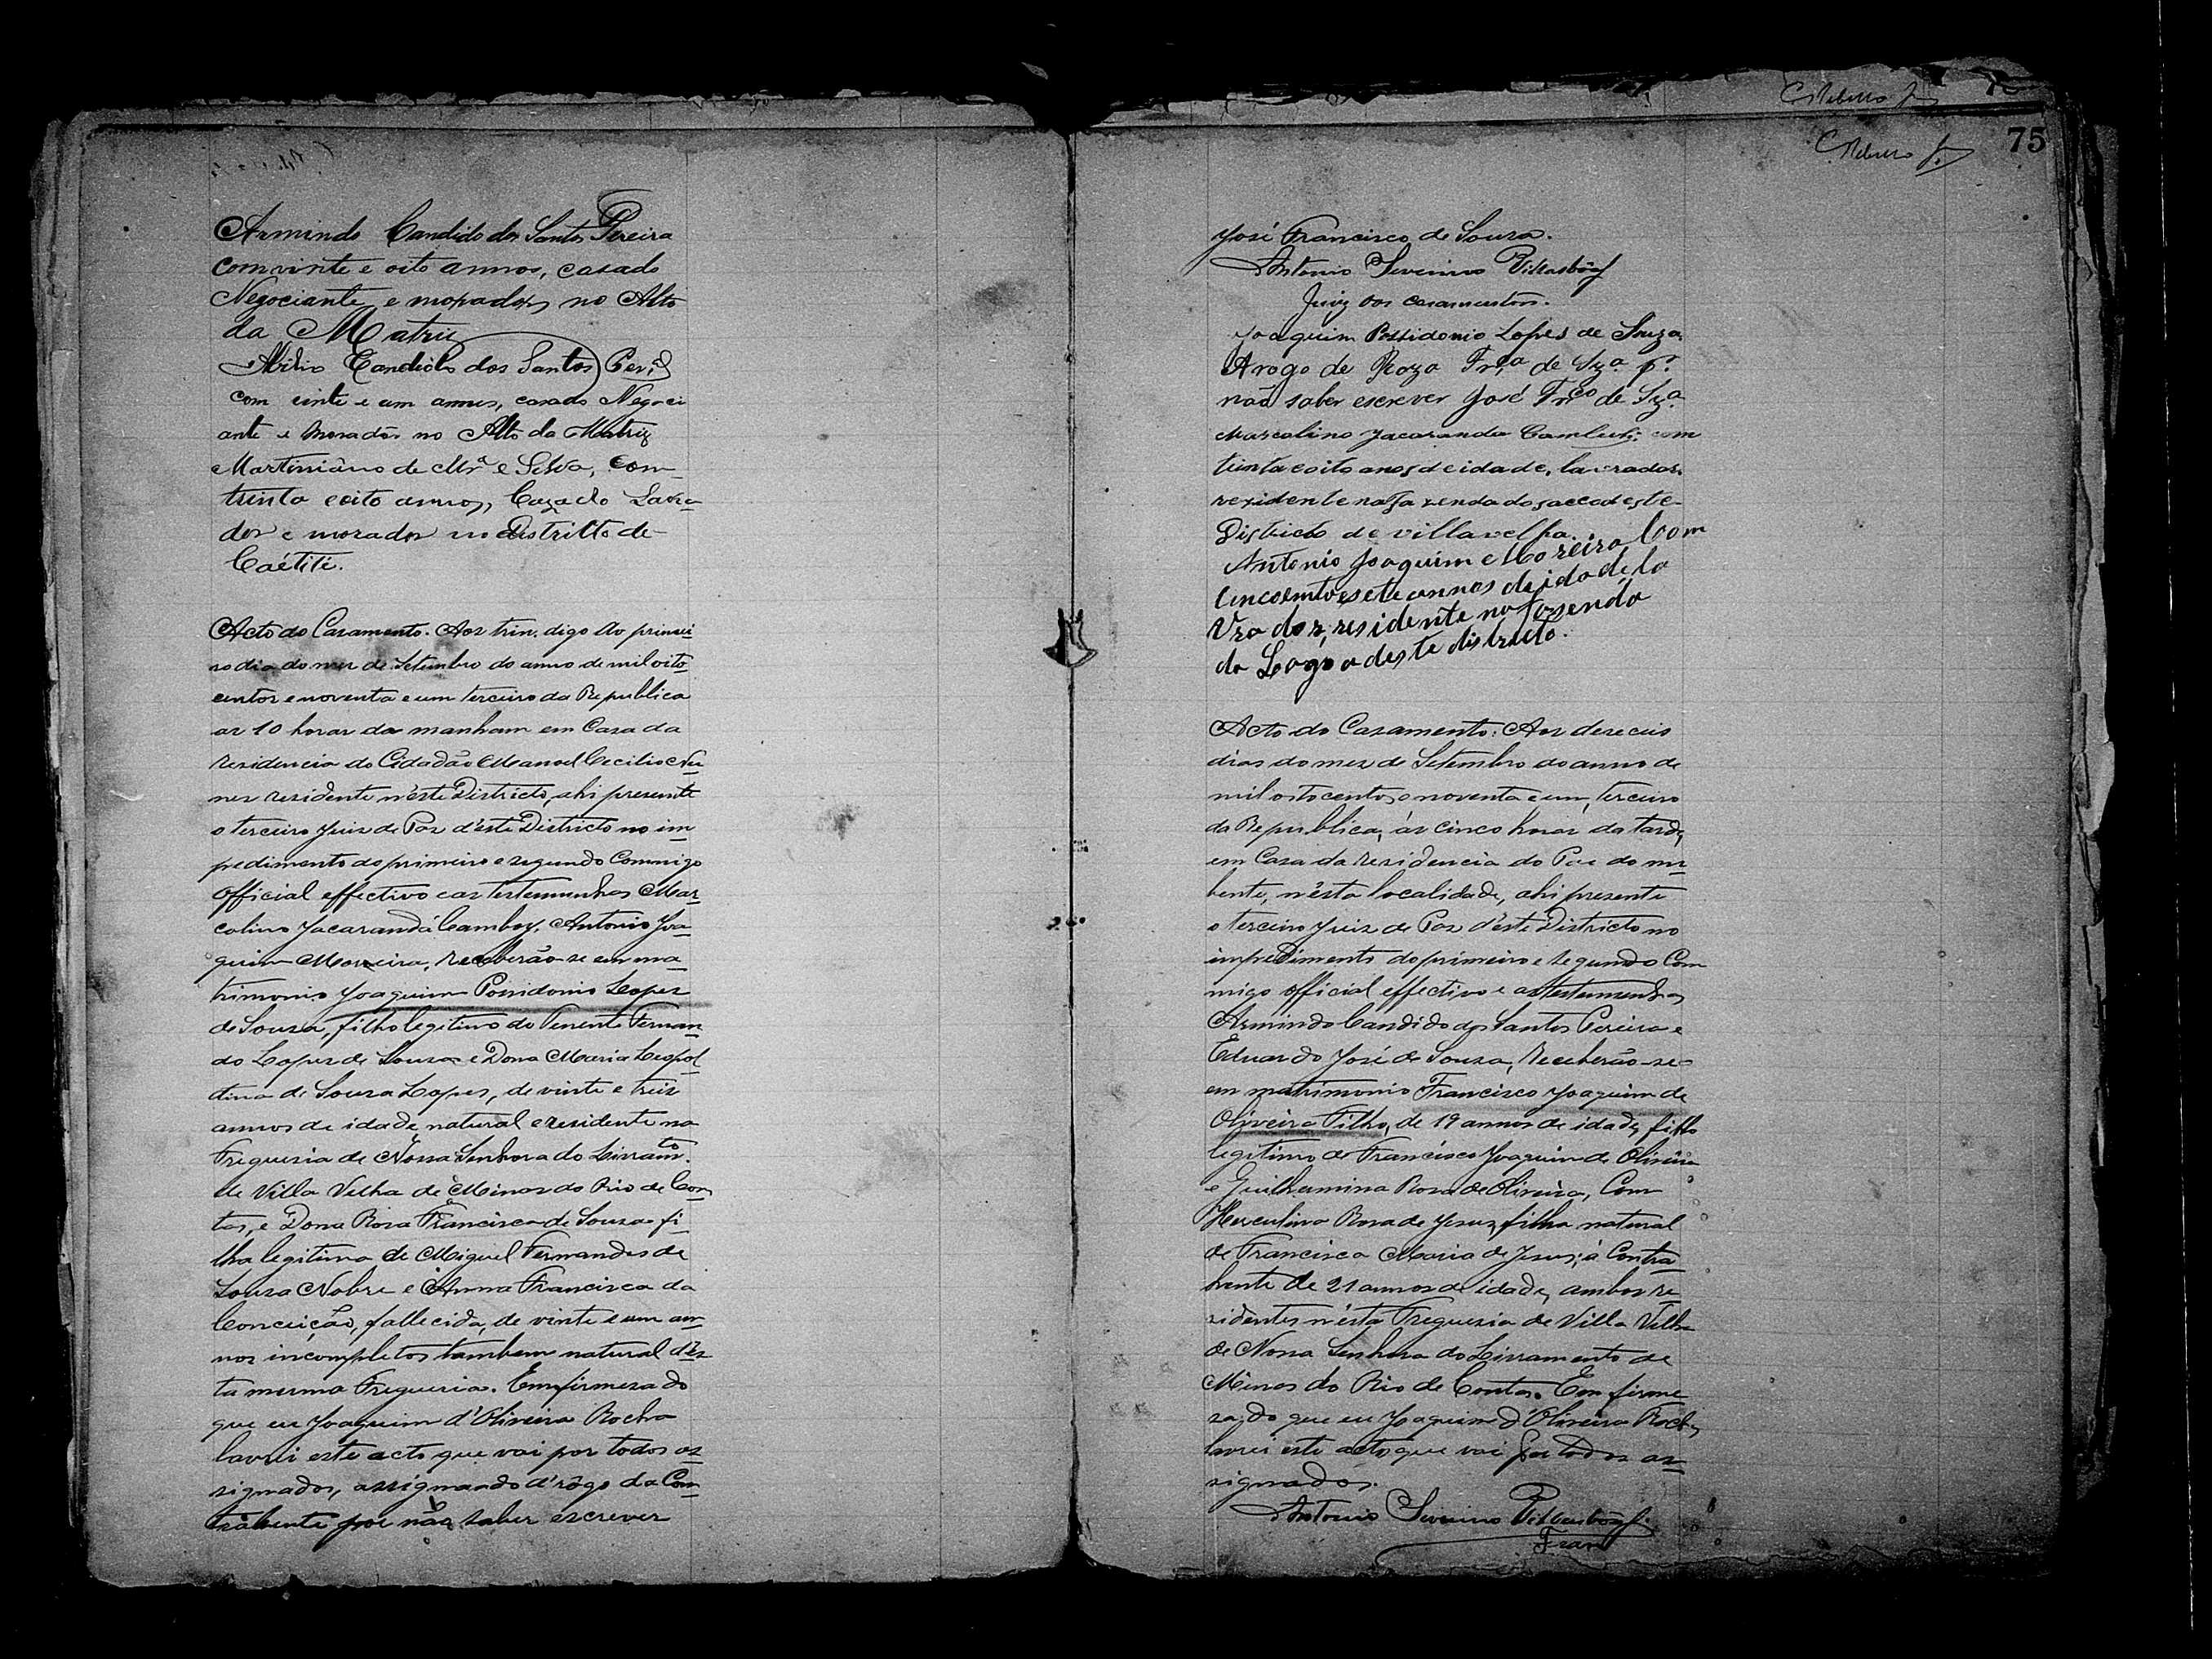 Armindo Candido dos Santos Pereira
com vinte e oito annos, casado
Negociante e morador no Alto
da Matriz
Abilio Candido dos Santos Per.ª
com vinte e um annos, casado Negoci
ante e morador no Alto da Matriz
Martiniano de Mr.ª e Silva, com
trinta e oito annos, Cazado Lavra-
dor e morador no Distritto de
Caétité.
Acto do Casamento. Aos trin. digo Ao primei
ro dia do mez de Setembro do anno de mil oito
centos e noventa e um terceiro da Republica
as 10 horas da manham em Casa da
residencia do Cidadão Manoel Cecilio Nu
nes residente n'este Districto, ahi presente
o terceiro Juiz de Paz d'este Districto no im
pedimento do primeiro e segundo Commigo
Official effectivo e as testemunhas Mar
colino Jacarandá Camboy, Antonio Joa
quim Moreira, receberão-se em ma
trimonio Joaquim Possidonio Lopes
de Sousa, filho legitimo do Tenente Fernan
do Lopes de Sousa e Dona Maria Leopol
dina de Sousa Lopes, de vinte e treis
annos de idade natural e residente na
Freguesia de Nossa Senhora do Livram.to
de Villa Velha de Minas do Rio de Con
tas, e Dona Rosa Francisca de Sousa fi
lha legitima de Miguel Fernandes de
Sousa Nobre e Anna Francisca da
Conceição, fallecida, de vinte e um an
nos incompletos tambem natural d'es
ta mesma Freguesia. Em firmesa do
que eu Joaquim d'Oliveira Rocha
lavrei este acto que vai por todos as
signados, assignando d'rôgo da Con
trahente por não saber escrever
C Rebello Jr
C Rebello Jr
75
José Francisco de Sousa.
Antonio Severino
Juiz dos casamentos.
Joaquim Possidonio Lopes de Souza
Arogo de Roza Fr.ca de Sza. p.r
não saber escrever José Fr.co de Sza.
Marcolino Jacaranda com
trinta e oito anos de idade, lavrador
rezidente na fazenda do sacco deste
Districto de villa velha.
Antonio Joaquim Moreira Com
Cincoenta e sete annos de idade, la
vrador, residente na fasenda
da Lagoa deste districto.
Acto do Casamento: Aos deseceis
dias do mez de Setembro do anno de
mil oitocentos e noventa e um, terceiro
da Republica, ás cinco horas da tarde,
em Casa da residencia do Pae do nu
bente, n'esta localidade, ahi presente
o terceiro Juiz de Paz d'este Districto no
impedimento do primeiro e segundo Com
migo official effectivo e as testemunhas
Armindo Candido dos Santos Pereira e
Eduardo José de Sousa, Receberão-se
em matrimonio Francisco Joaquim de
Oliveira Filho, de 19 annos de idade, filho
legitimo de Francisco Joaquim de Oliveira
e Guilhermina Rosa de Oliveira, Com
Herculina Rosa de Jesus, filha natural
de Francisca Maria de Jesus; á Contra
hente de 21 annos de idade, ambos re
sidentes n'esta Freguesia de Villa Velha
de Nossa Senhora do Livramento de
Minas do Rio de Contas. Em firme
sa do que eu Joaquim d'Oliveira Rocha
lavrei este acto, que vai por todos as
signados.
Antonio Severino
Fran